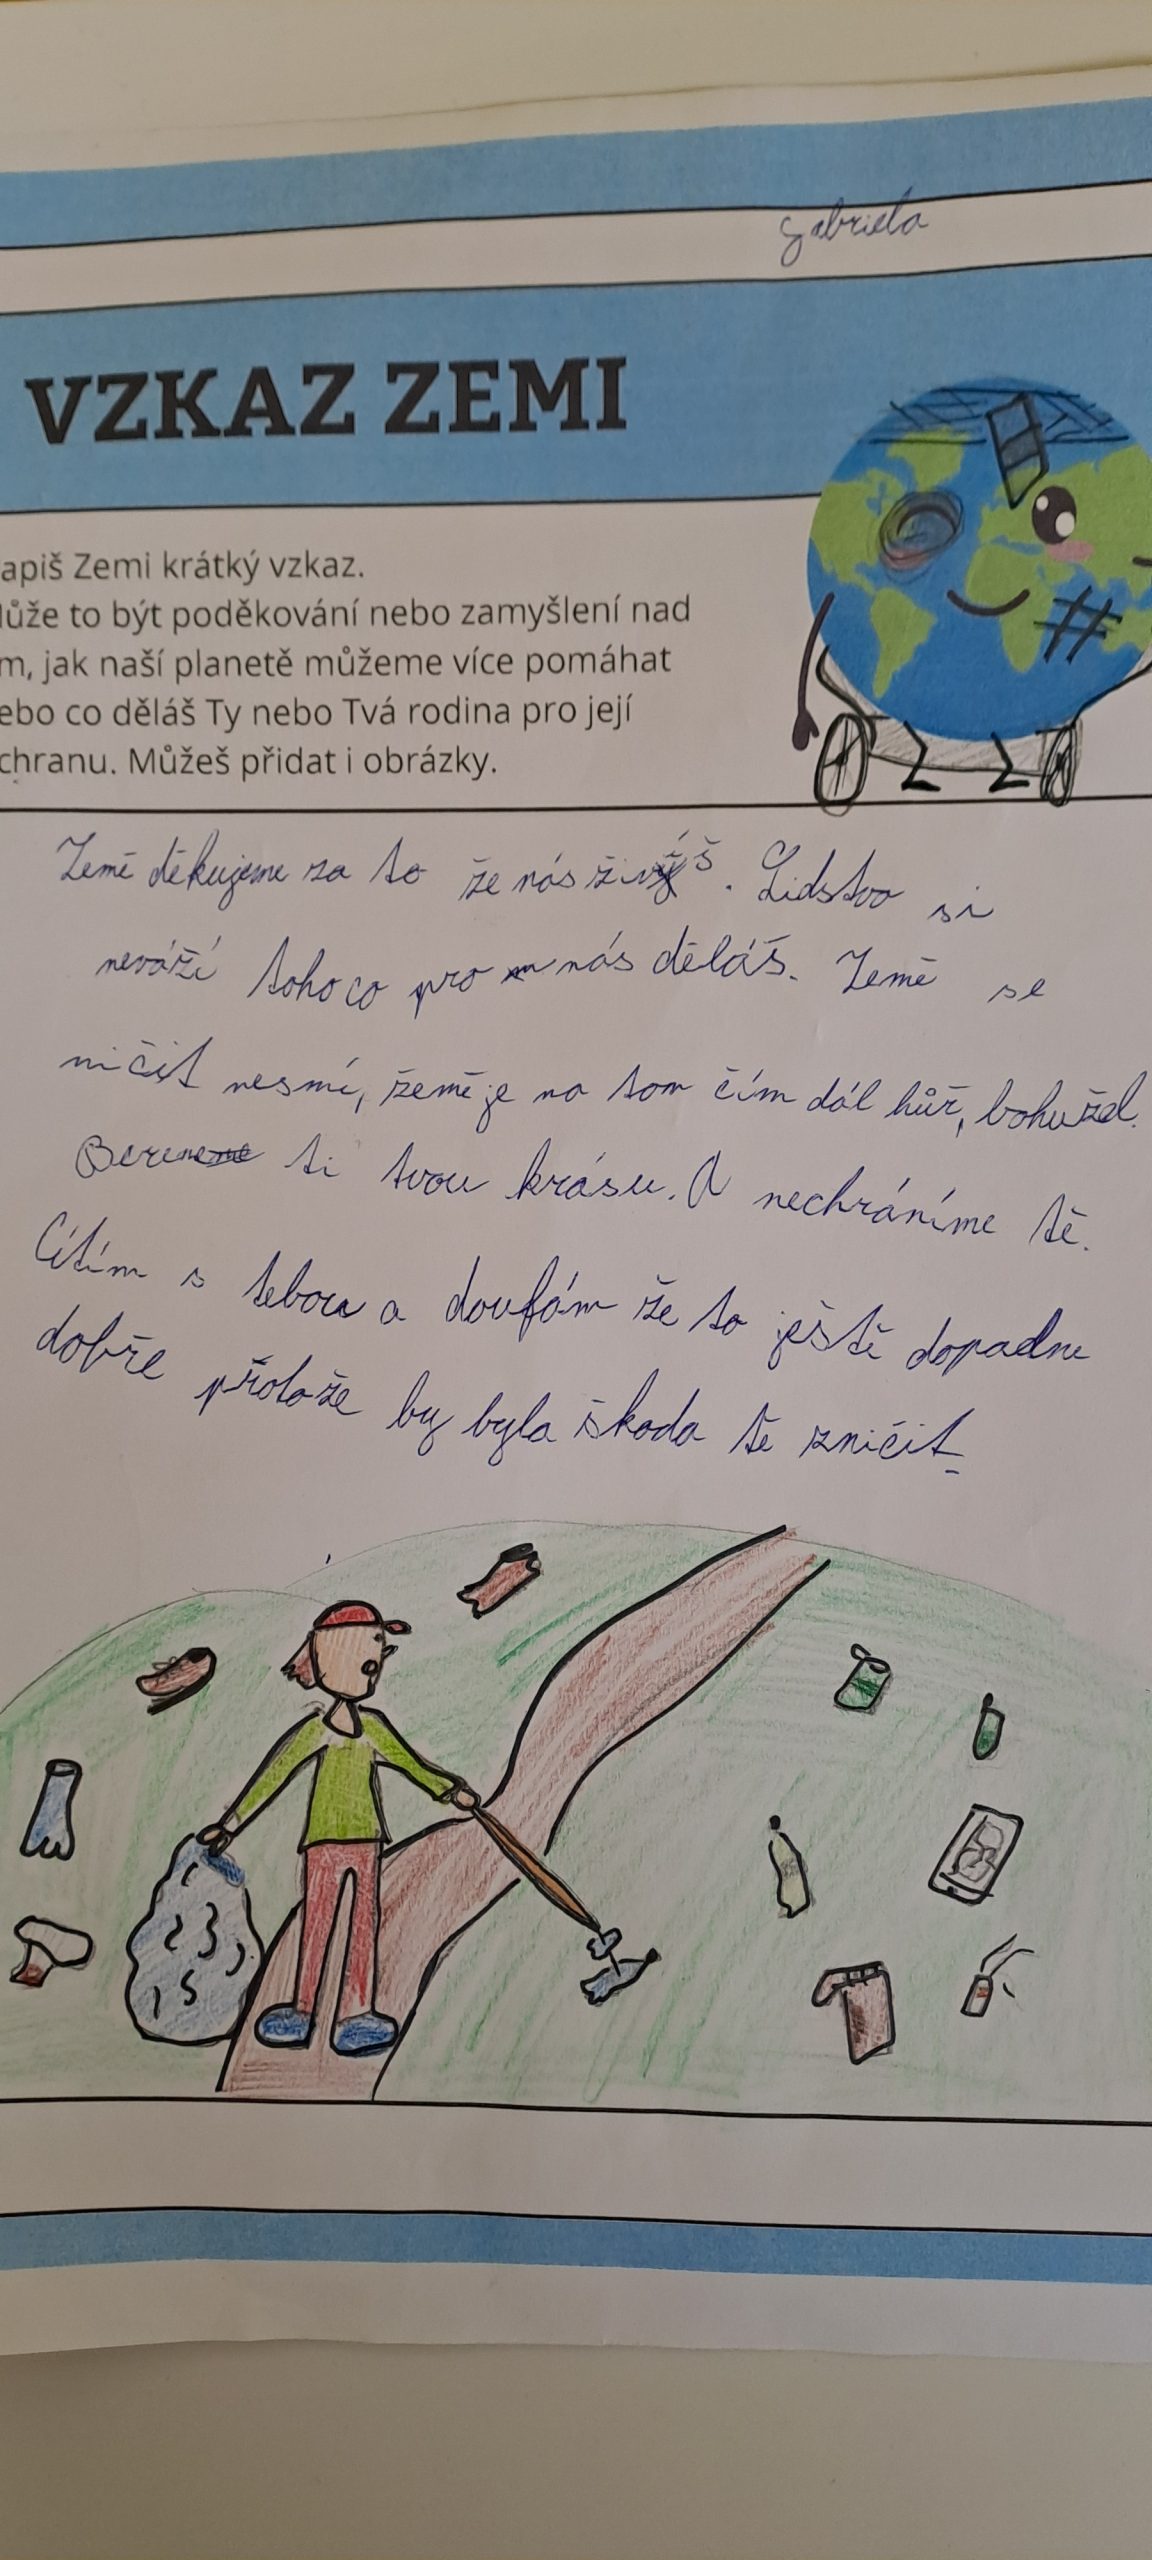 Gabriela
VZKAZ ZEMI
apiš Zemi krátký vzkaz.
ůže to být poděkování nebo zamyšlení nad
m, jak naší planetě můžeme více pomáhat
ebo co děláš Ty nebo Tvá rodina pro její
chranu. Můžeš přidat i obrázky.
Země děkujeme za to že nás živíš. Lidstvo si
neváží toho co pro nás děláš. Země se
ničit nesmí, země je na tom čím dál hůř, bohužel.
Bereme ti tvou krásu. A nechráníme tě.
Cítím s tebou a doufám že to ještě dopadne
dobře přotože by byla škoda tě zničit.